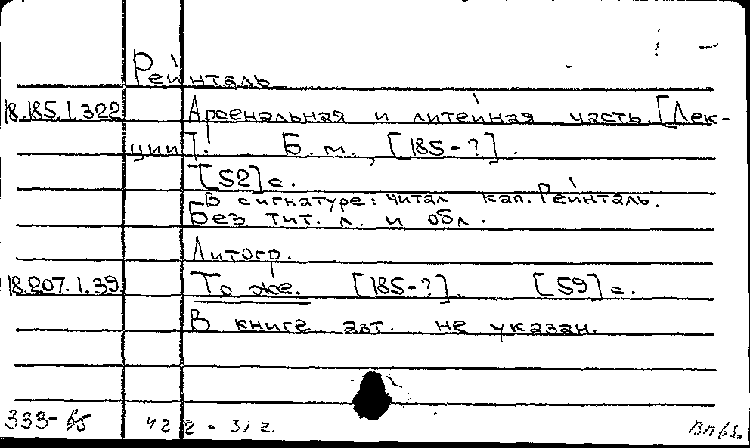 Рейнталь
18.185.1.322 Арсенальная и литейная часть. [Лек-
ции]. Б. м., [185-?].
[52] с.
В сигнатуре: читал кап. Рейнталь.
Без тит. л. и обл.
Литогр.
18.207.1.39 То же. [185-?]. [59] с.
В книге авт. не указан.
333-